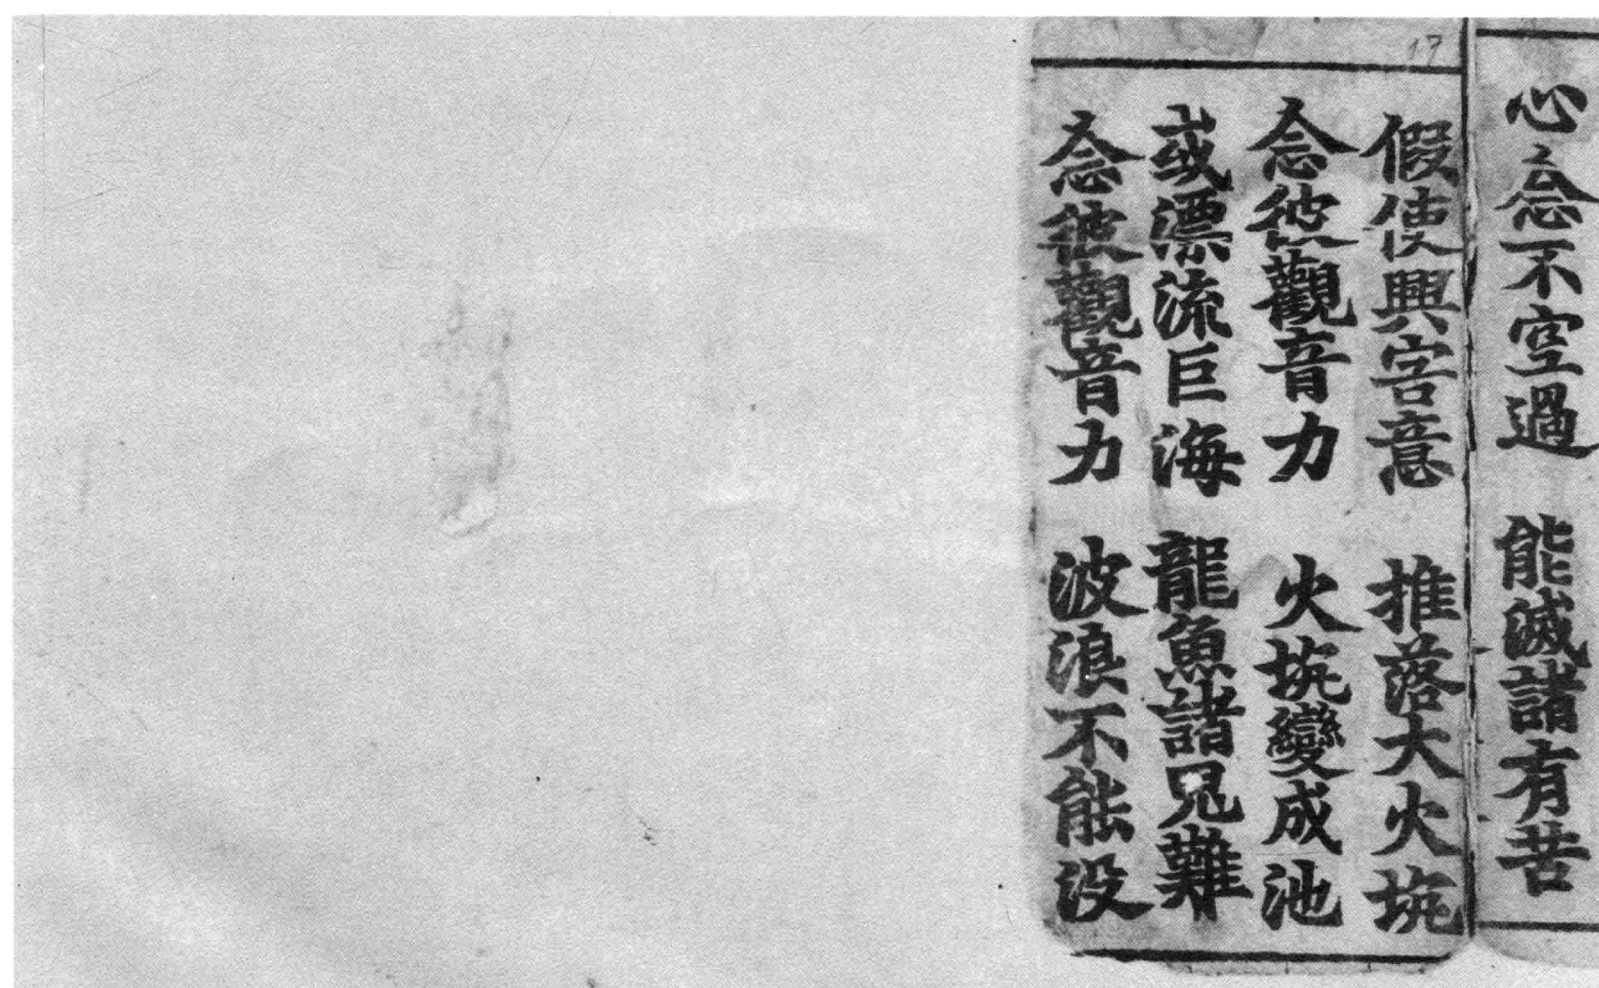 心念不空過　能滅諸有苦
假使興害意　推落大火坑
念彼觀音力　火坑變成池
或漂流巨海　龍魚諸鬼難
念彼觀音力　波浪不能没
17